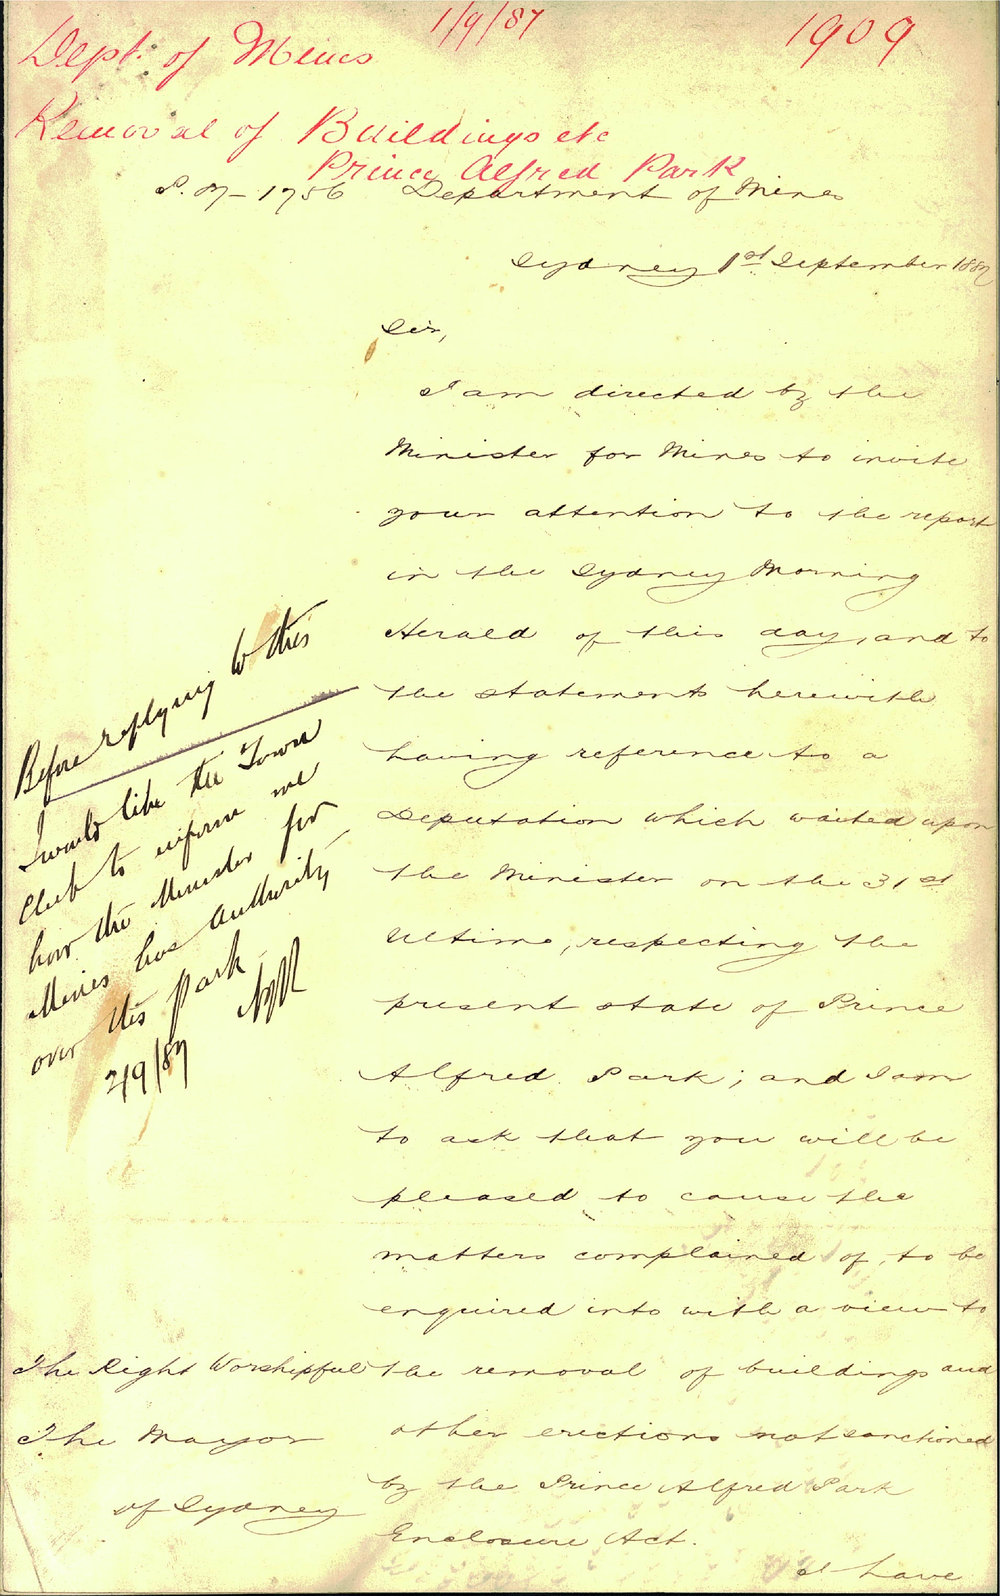 1/9/87
1909
Dept. of Mines
Removal of Buildings etc
Prince Alfred Park
Department of Mines
Sydney 1st September 1887
Sir,
I am directed by the
Minister for Mines to invite
your attention to the report
in the Sydney Morning
Herald of this day, and to
the statements herewith
having reference to a
Deputation which waited upon
the Minister on the 31st
Ultimo, respecting the
present state of Prince
Alfred Park; and I am
to ask that you will be
pleased to cause the
matters complained of, to be
enquired into with a view to
the removal of buildings and
other erections not sanctioned
by the Prince Alfred Park
Enclosure Act.
I have
The Right Worshipful
The Mayor
of Sydney
Before replying to this
I would like the Town
Clerk to inform me
how the Minister for
Mines has authority
over this Park
2/9/87